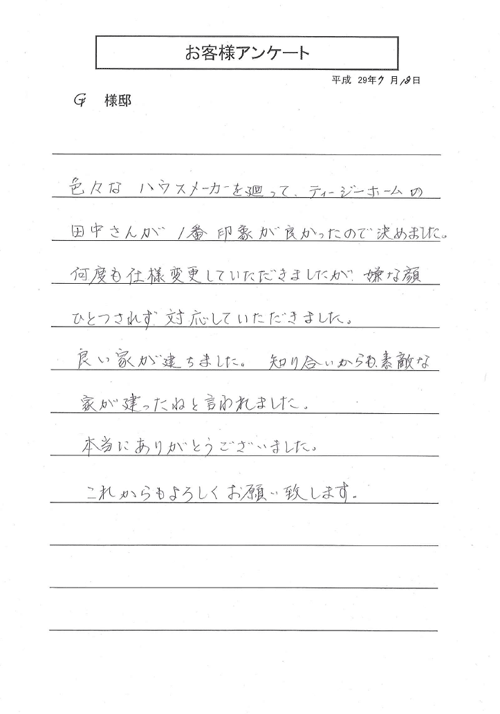 お客様アンケート
平成 29年7月18日
G 様邸
色々な ハウスメーカーを廻って、ティージーホームの
田中さんが 1番 印象が良かったので決めました。
何度も仕様変更していただきましたが、嫌な顔
ひとつされず 対応していただきました。
良い家が建ちました。 知り合いからも素敵な
家が建ったねと言われました。
本当にありがとうございました。
これからもよろしくお願い致します。